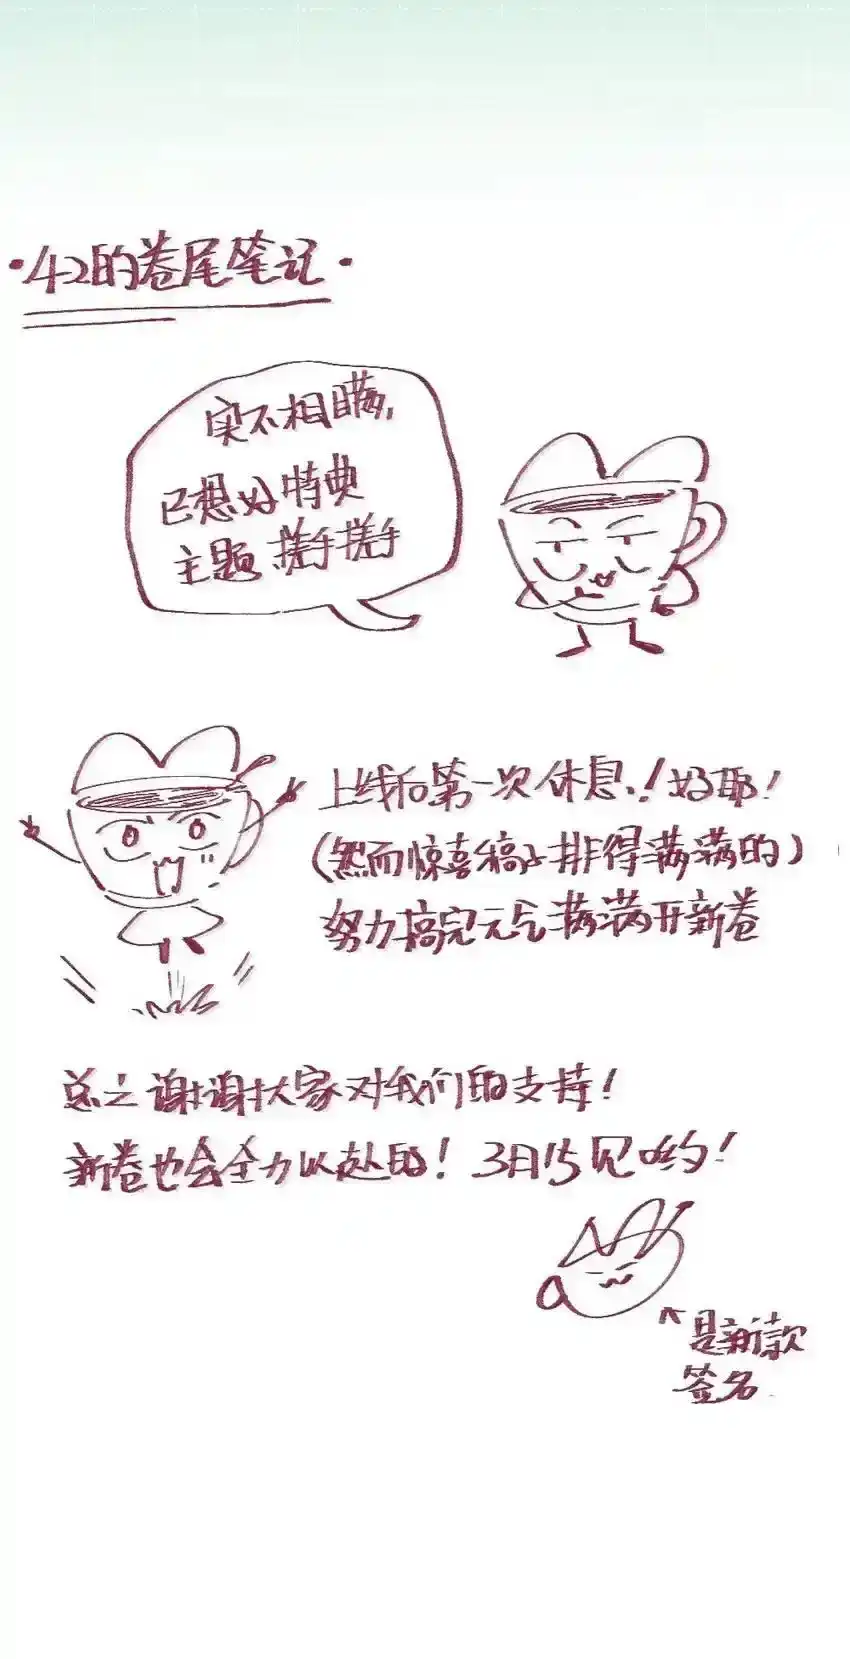 ·42的卷尾笔记·
实不相瞒,
已想好特典
主题,搓手搓手
上线后第一次休息!好耶!
(然而惊喜稿子排得满满的)
努力搞完元气满满开新卷
总之谢谢大家对我们的支持!
新卷也会全力以赴的!3月15见哟!
是新款
签名